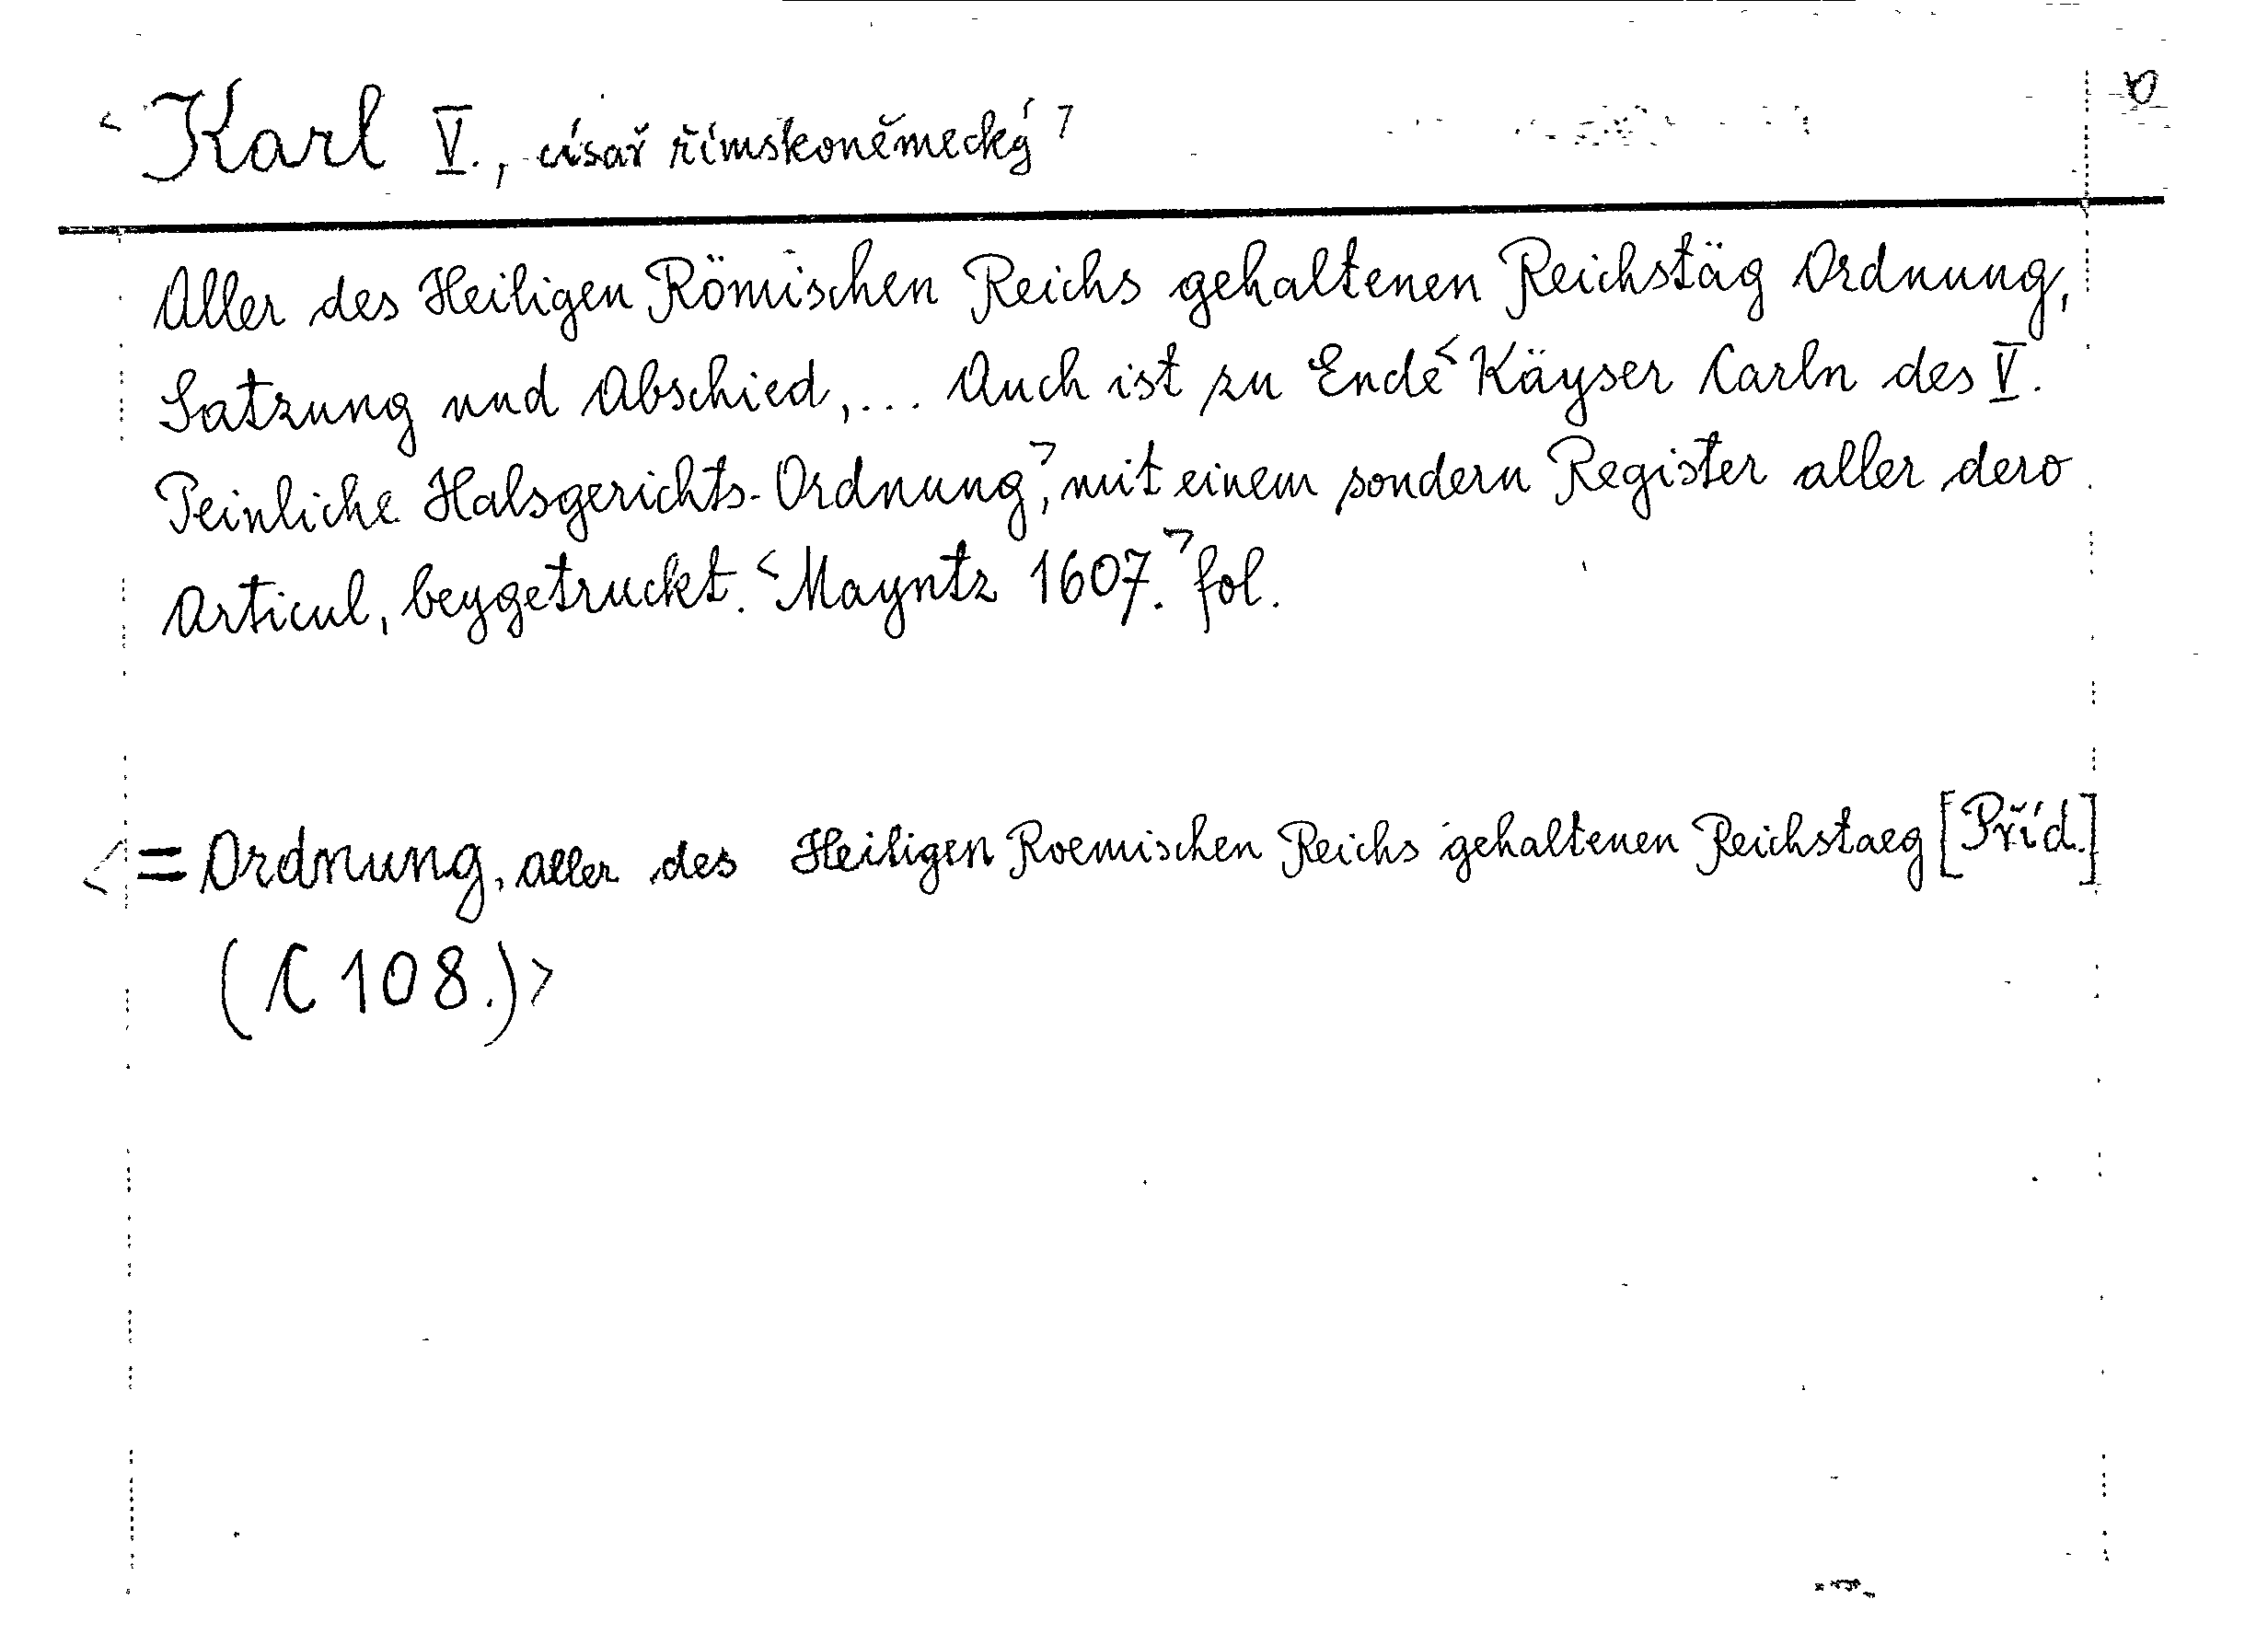 <Karl V., císař římskoněmecký>
Aller des Heiligen Römischen Reichs gehaltenen Reichstäg Ordnung,
Satzung und Abschied,... Auch ist zu Ende <Käyser Carln des V.
Peinliche Halsgerichts-Ordnung>, mit einem sondern Register aller dero
Articul, beygetruckt. <Mayntz 1607.> fol.
<= Ordnung, aller des Heiligen Roemischen Reichs gehaltenen Reichstaeg [Příd.]
(C 108.)>